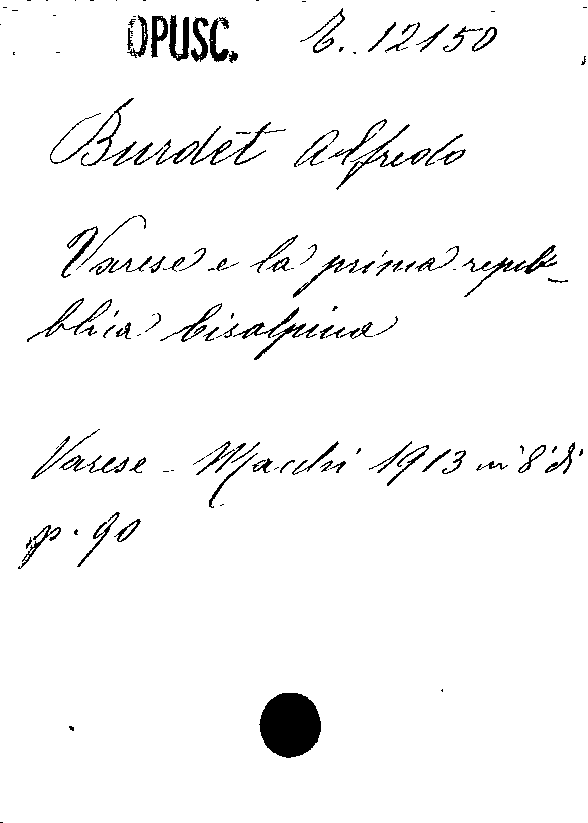 OPUSC. E. 12150
Burdet Alfredo
Varese e la prima repub-
blica Cisalpina
Varese - Macchi 1913 in 8° di
p. 90